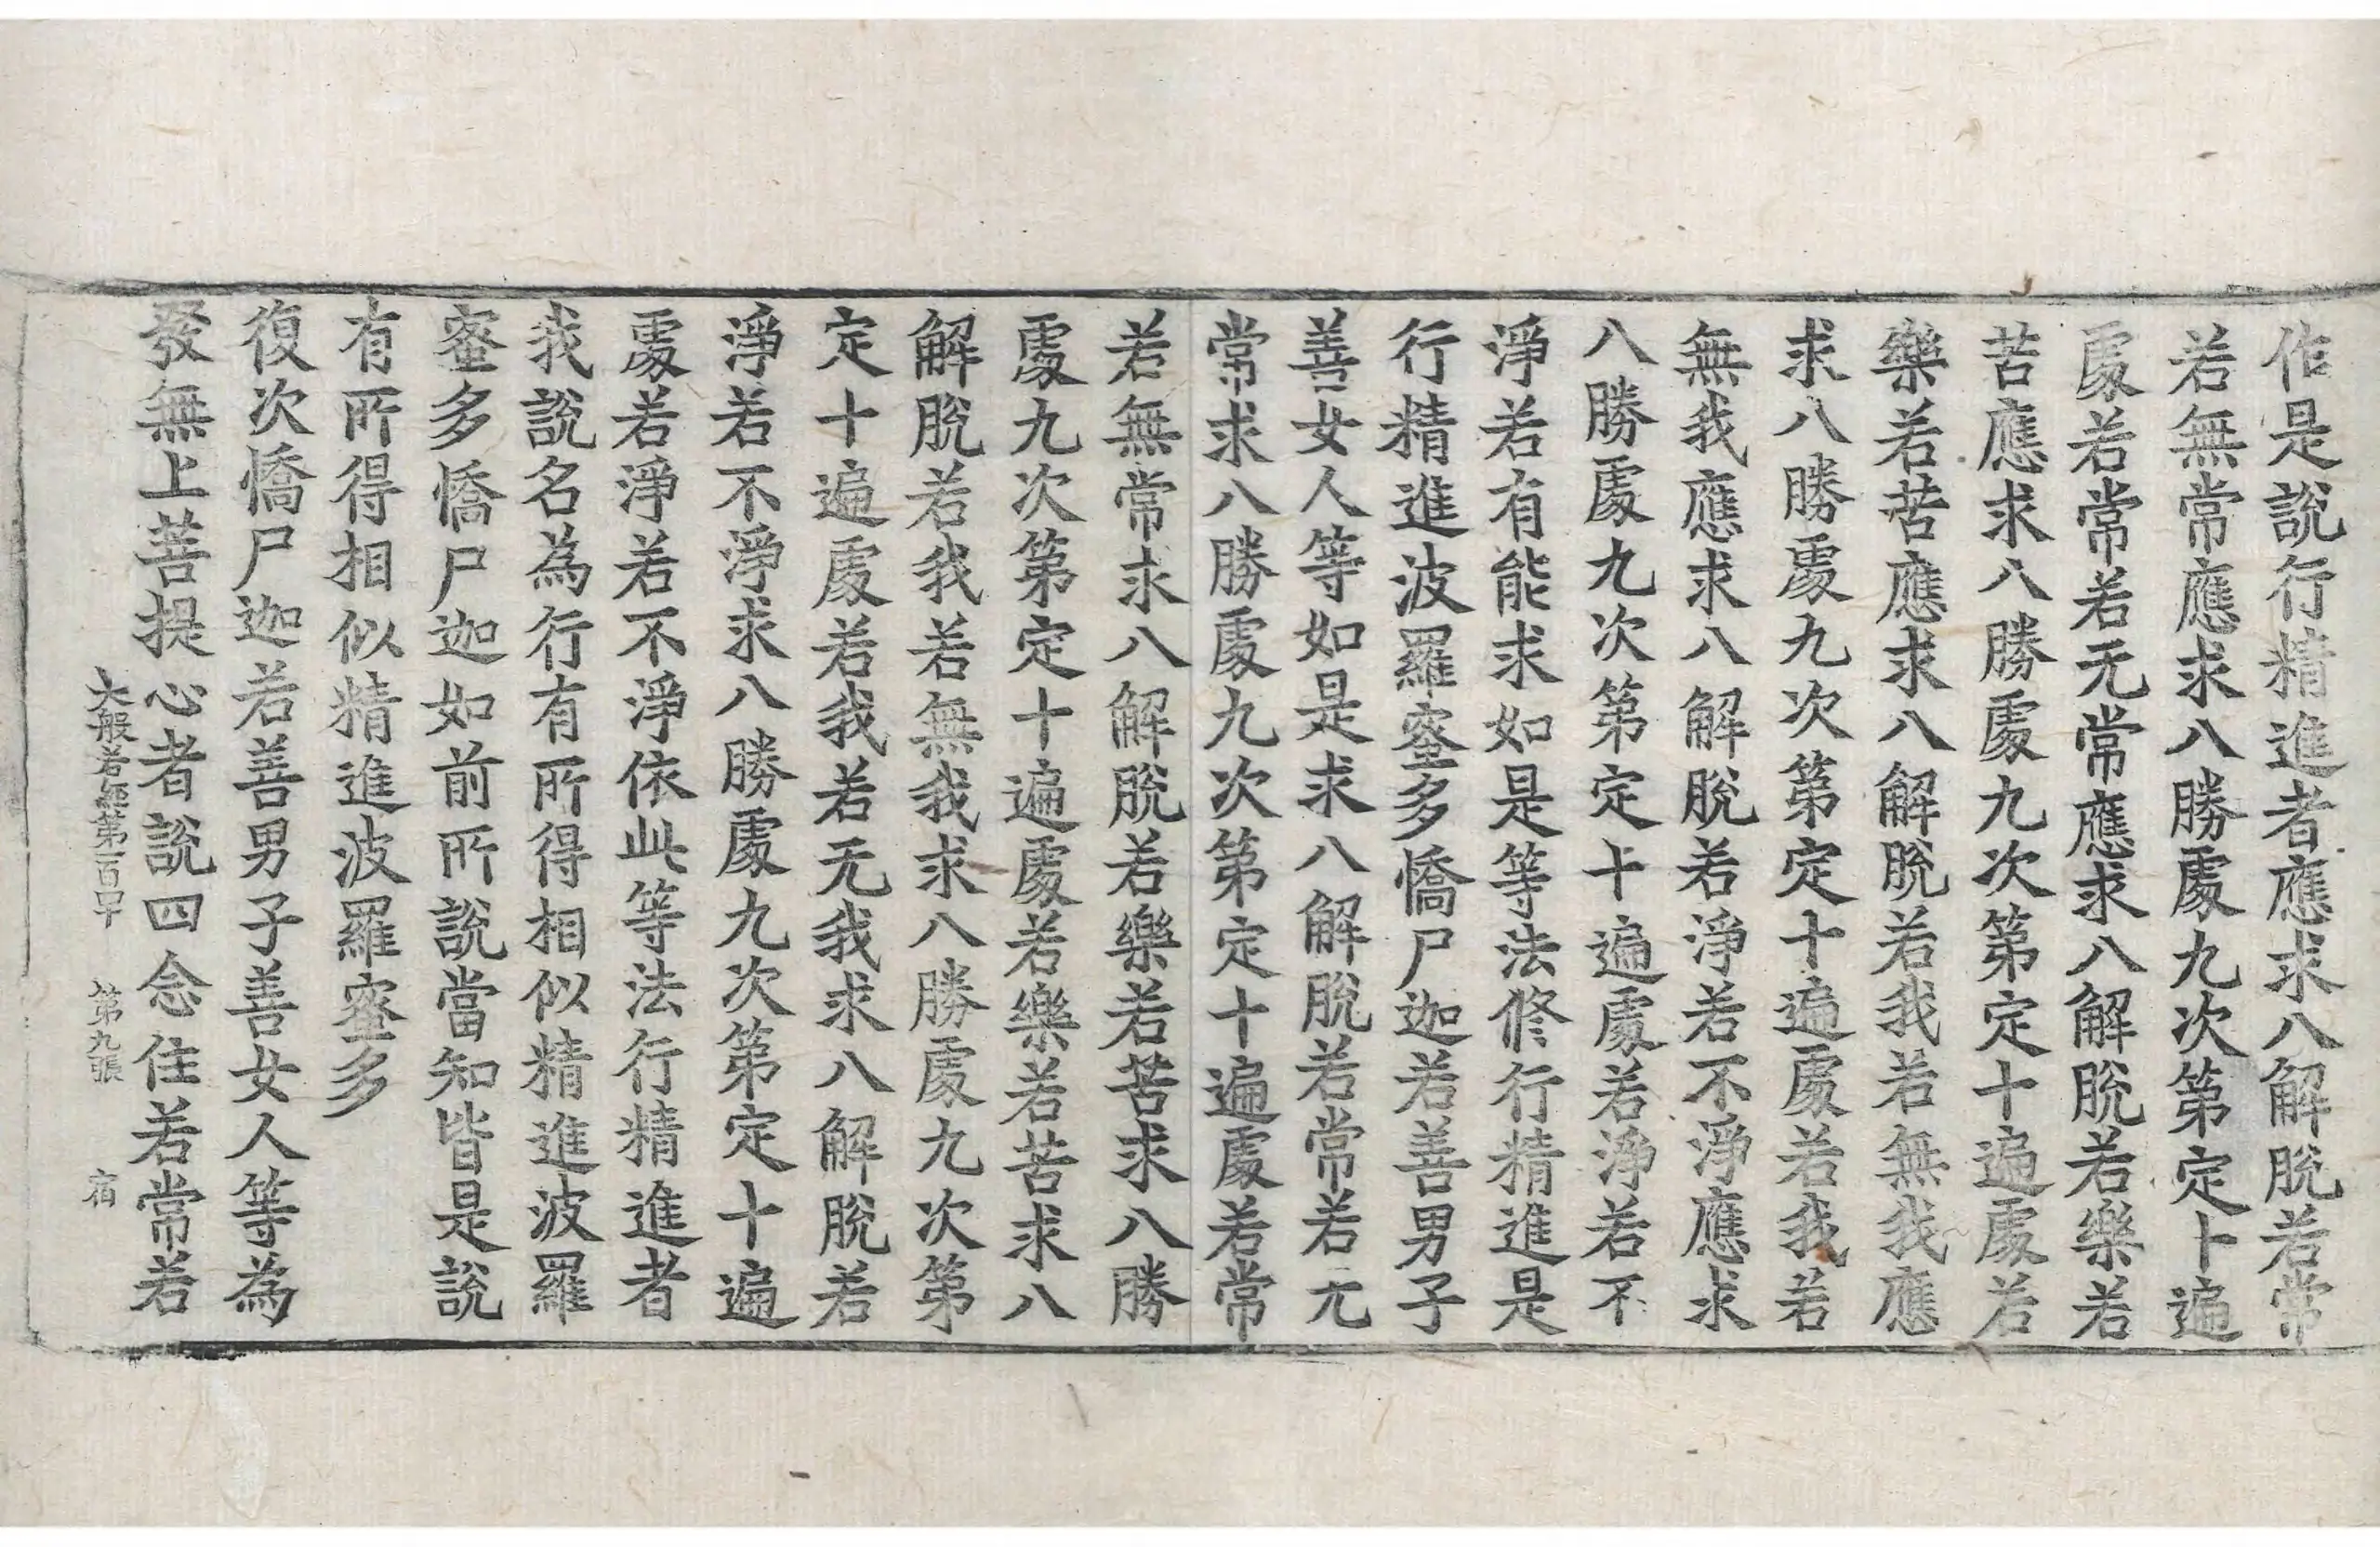 作是說行精進者應求八解脫若常
若無常應求八勝處九次第定十遍
處若常若无常應求八解脫若樂若
苦應求八勝處九次第定十遍處若
樂若苦應求八解脫若我若無我應
求八勝處九次第定十遍處若我若
無我應求八解脫若淨若不淨應求
八勝處九次第定十遍處若淨若不
淨若有能求如是等法修行精進是
行精進波羅蜜多憍尸迦若善男子
善女人等如是求八解脫若常若无
常求八勝處九次第定十遍處若常
若無常求八解脫若樂若苦求八勝
處九次第定十遍處若樂若苦求八
解脫若我若無我求八勝處九次第
定十遍處若我若无我求八解脫若
淨若不淨求八勝處九次第定十遍
處若淨若不淨依此等法行精進者
我說名為行有所得相似精進波羅
蜜多憍尸迦如前所說當知皆是說
有所得相似精進波羅蜜多
復次憍尸迦若善男子善女人等為
發無上菩提心者說四念住若常若
大般若經第一百四十 第九張 宿